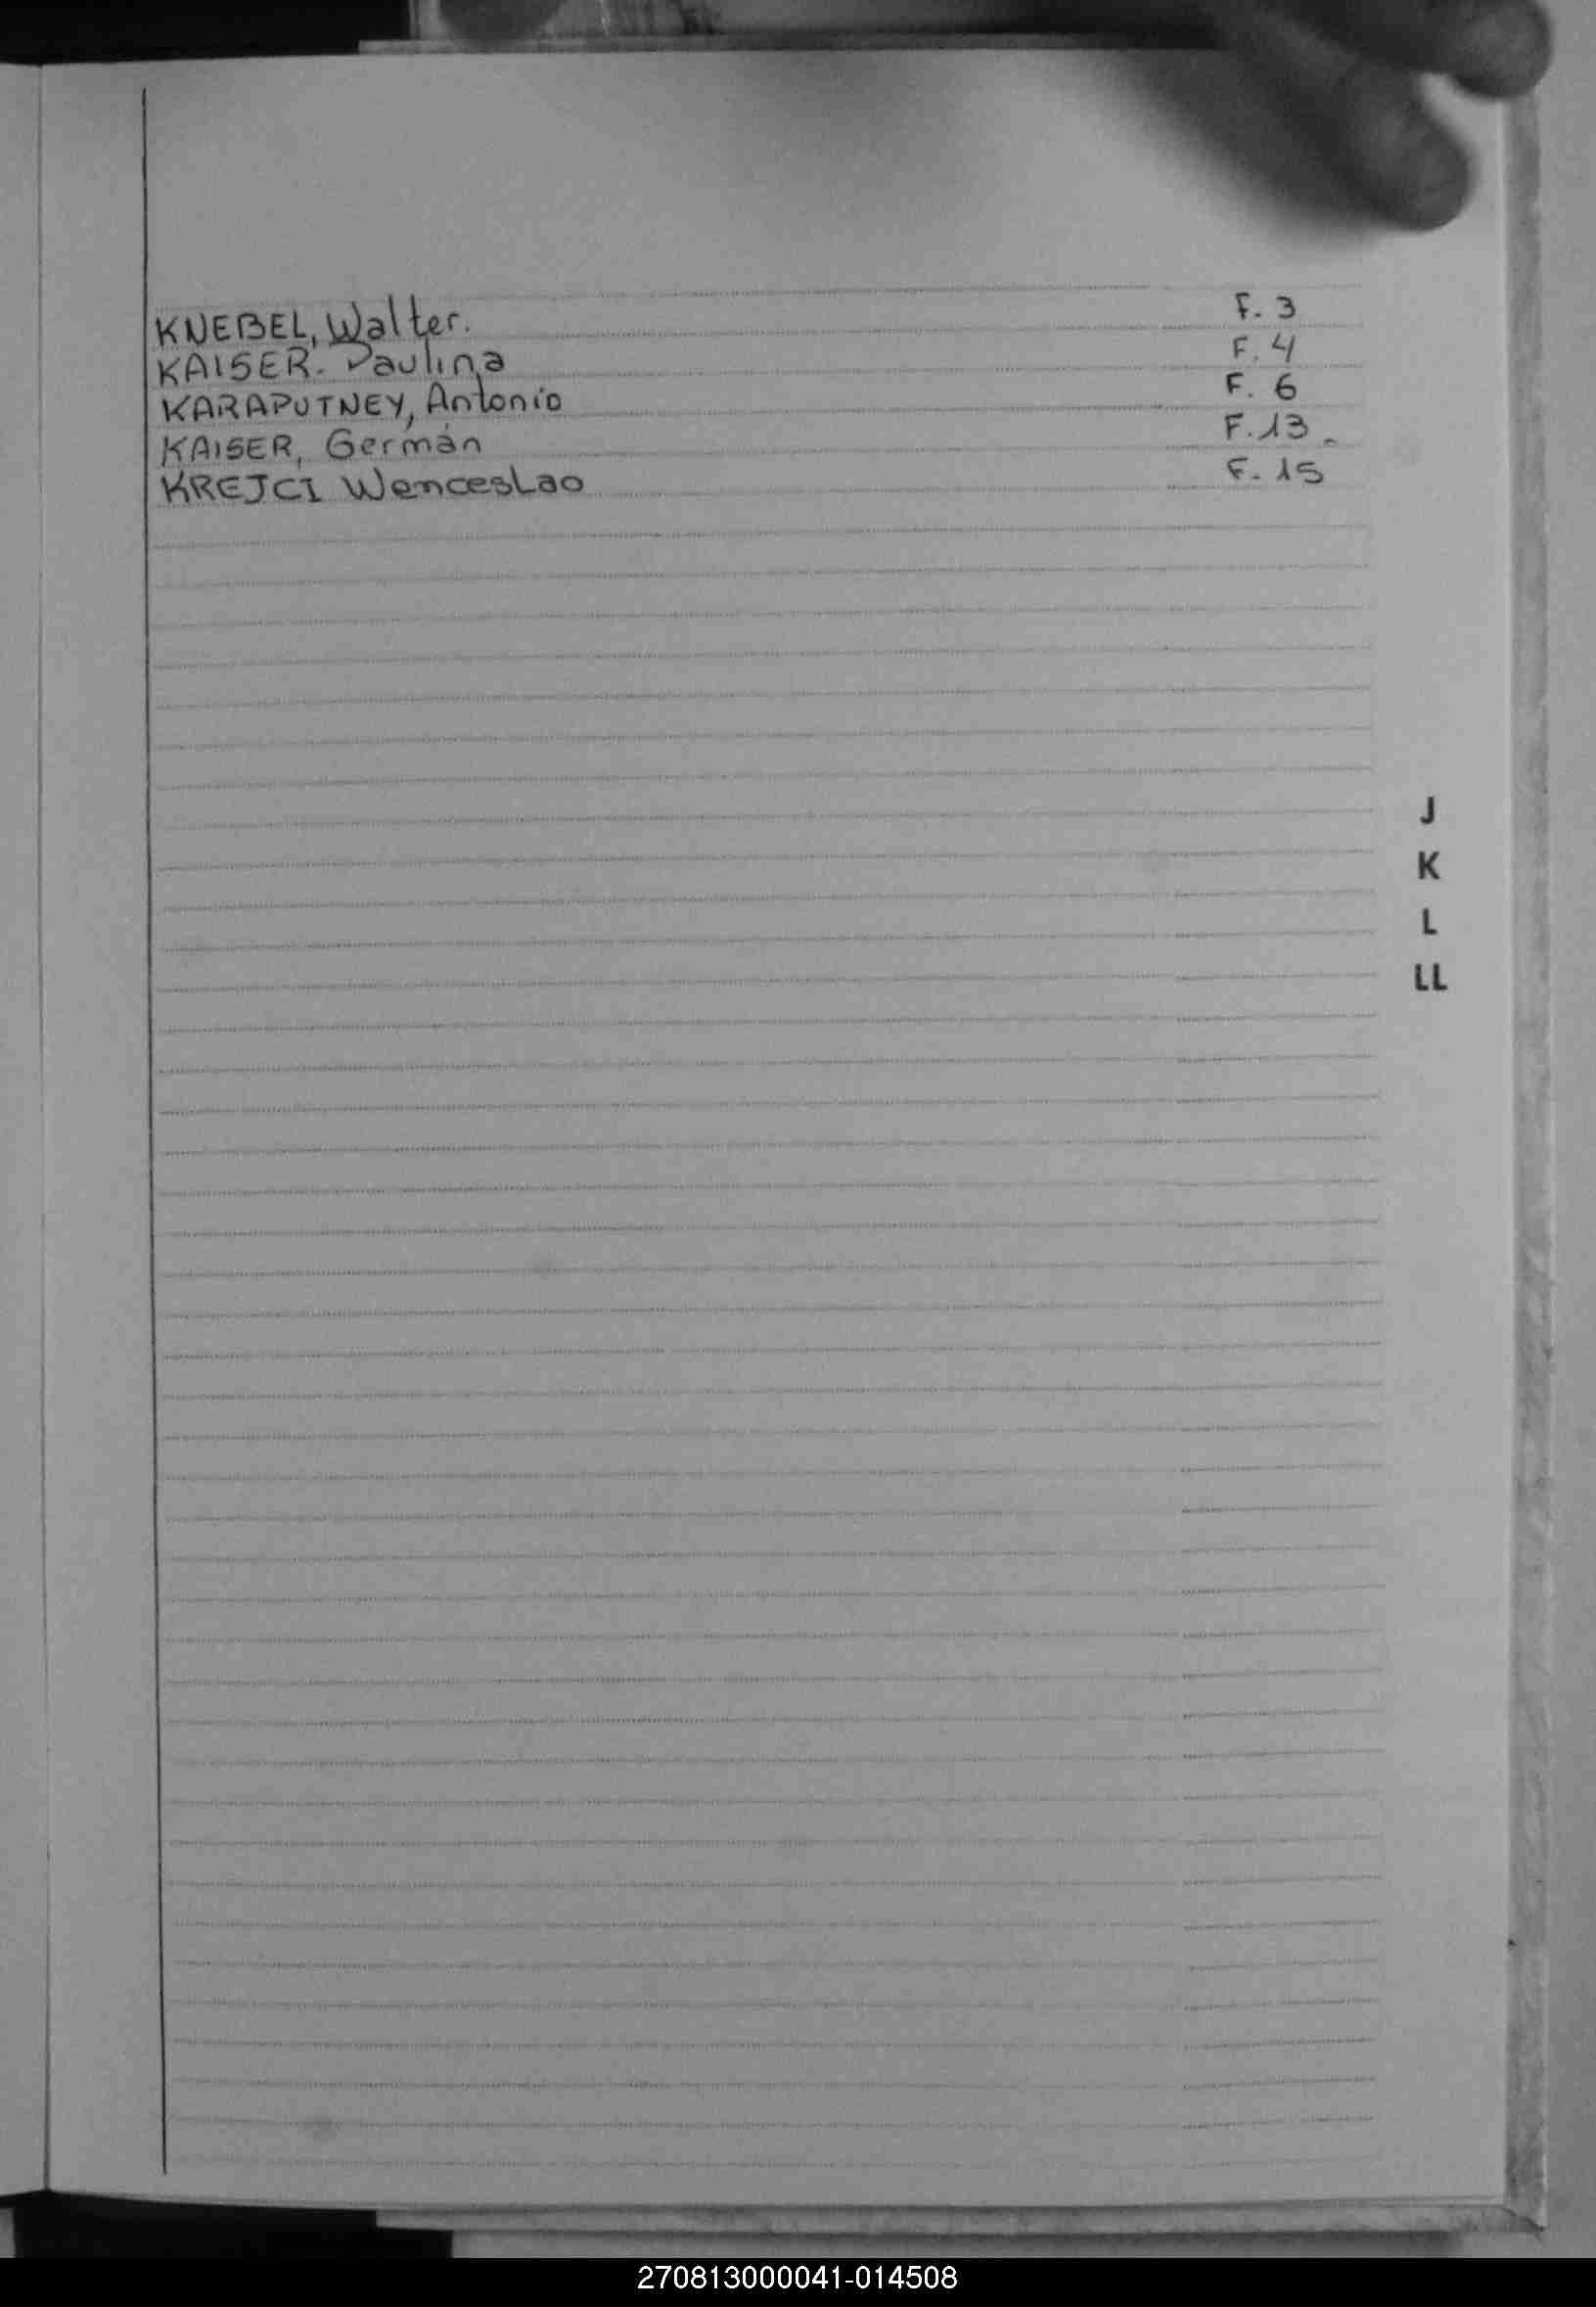 KNEBEL, Walter. F. 3
KAISER. Paulina F. 4
KARAPUTNEY, Antonio F. 6
KAISER, Germán F. 13.
KREJCI Wenceslao F. 15
J
K
L
LL
270813000041-014508